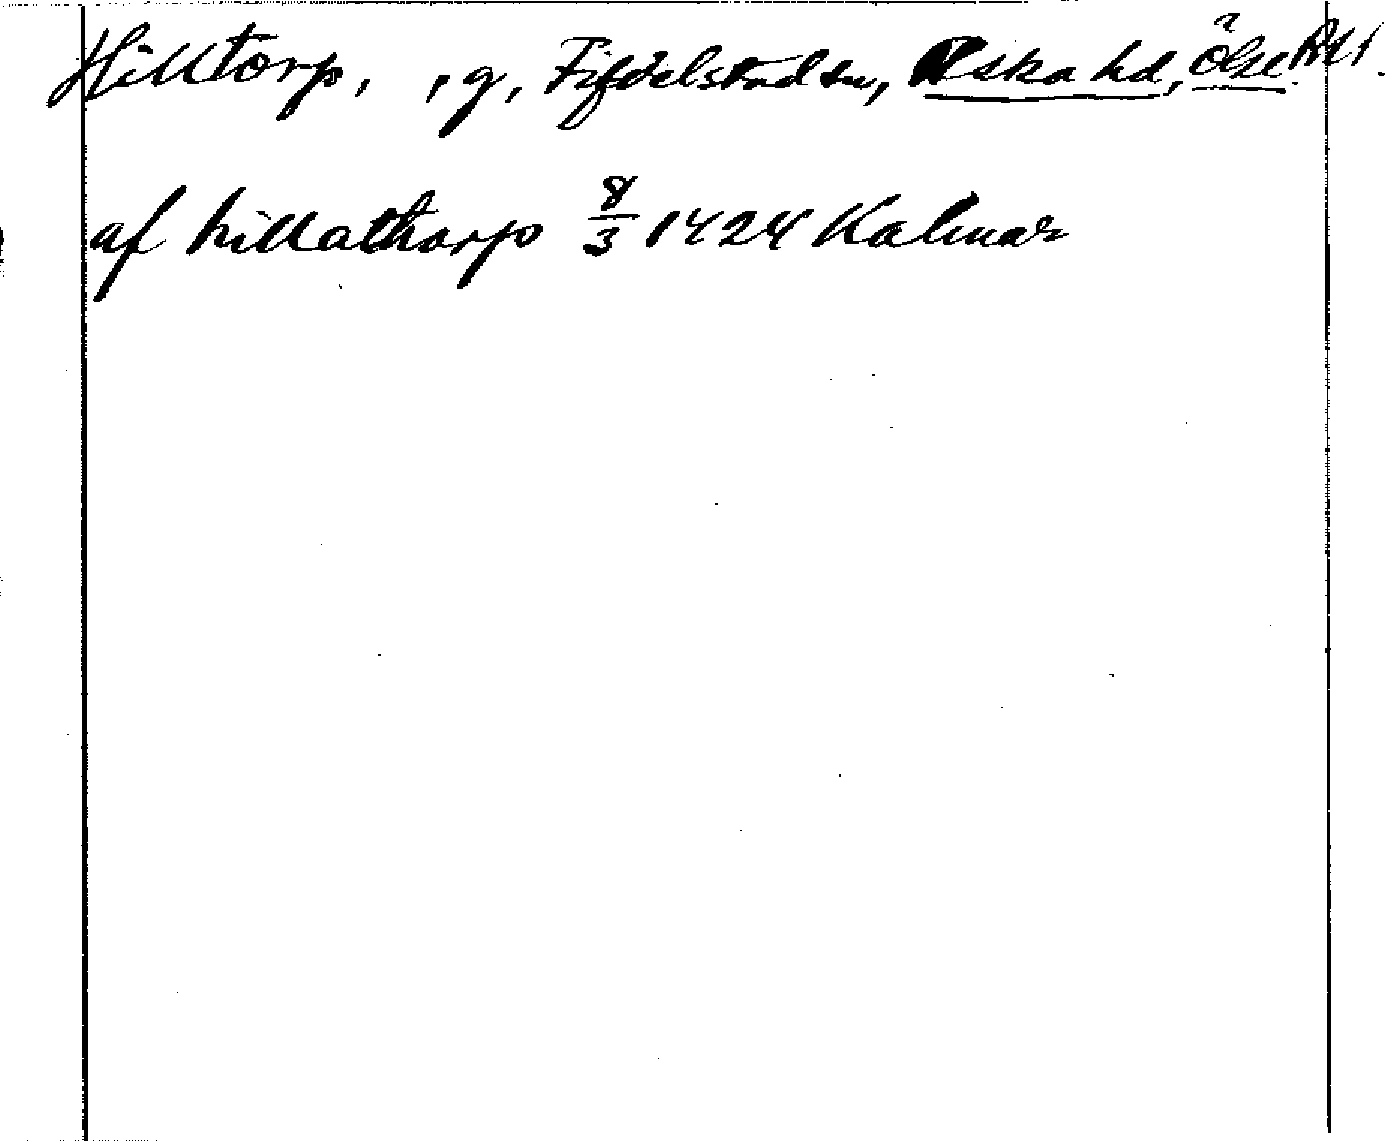 Hilltorp, , g, Fifvelstad sn, Aska hd, Ög
af hillathorp 8/3 1424 Kalmar